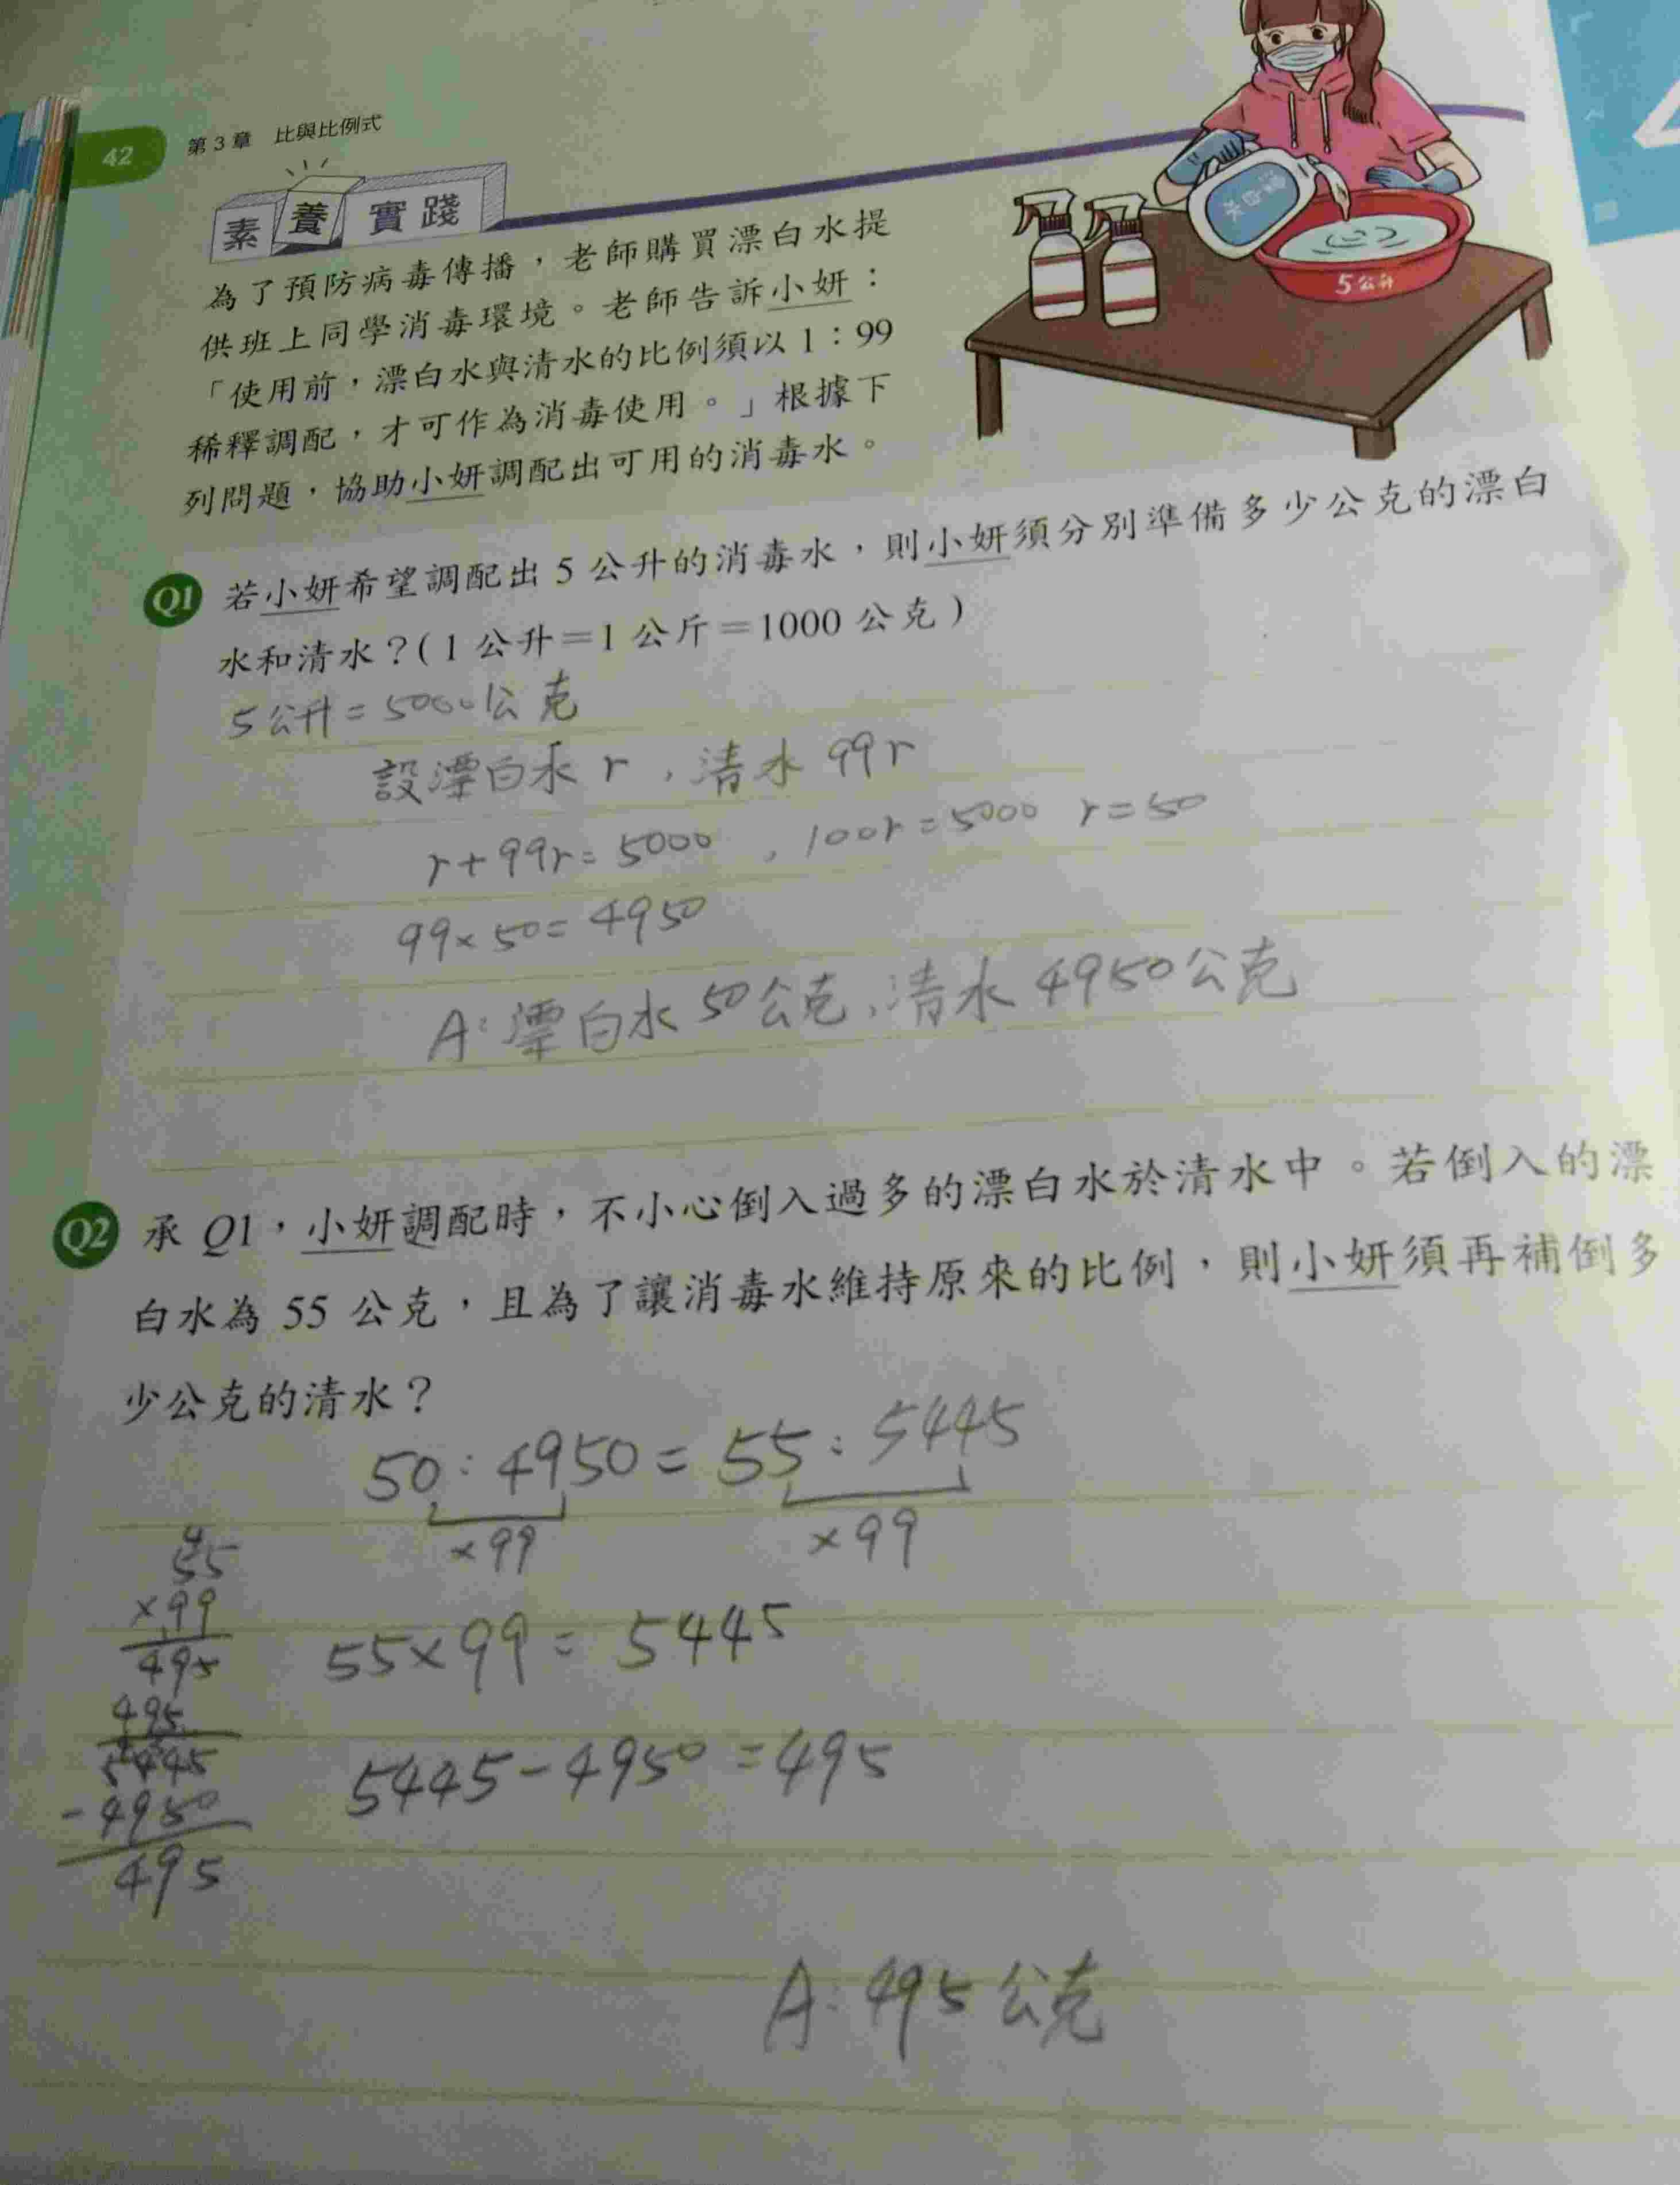 42
第3章 比與比例式
素養實踐
為了預防病毒傳播，老師購買漂白水提
供班上同學消毒環境。老師告訴小妍：
「使用前，漂白水與清水的比例須以1：99
稀釋調配，才可作為消毒使用。」根據下
列問題，協助小妍調配出可用的消毒水。
漂白水
5公升
Q1 若小妍希望調配出 5 公升的消毒水，則小妍須分別準備多少公克的漂白
水和清水？(1 公升＝1 公斤＝1000 公克)
5公升=5000公克
設漂白水 r , 清水 99r
r+99r=5000 , 100r=5000 r=50
99×50=4950
A:漂白水50公克,清水4950公克
Q2 承 Q1，小妍調配時，不小心倒入過多的漂白水於清水中。若倒入的漂
白水為 55 公克，且為了讓消毒水維持原來的比例，則小妍須再補倒多
少公克的清水？
50:4950=55:5445
×99 ×99
4
55
×99
495
495
5445
-4950
495
55×99=5445
5445-4950=495
A:495公克